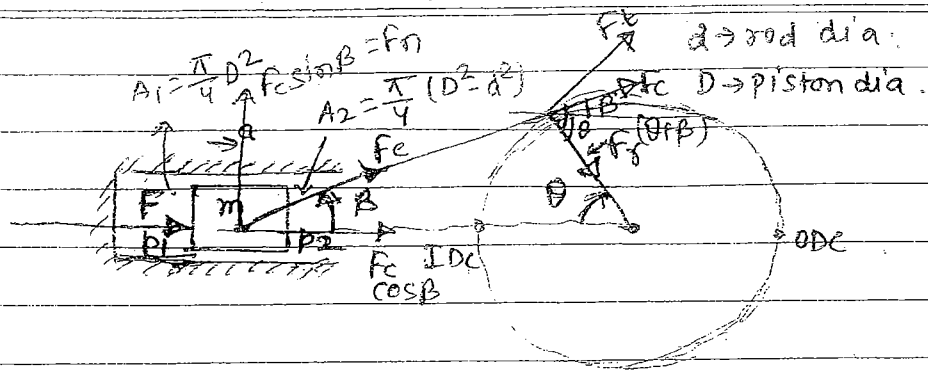 Ft
d → rod dia.
A₁ = π/4 D²
Fc sinβ = Fn
A₂ = π/4 (D² - d²)
Fc
D → piston dia.
β
θ
Fr
(θ+β)
a
Fc
θ
F
m
β
P1
P2
IDC
ODC
Fc
cosβ